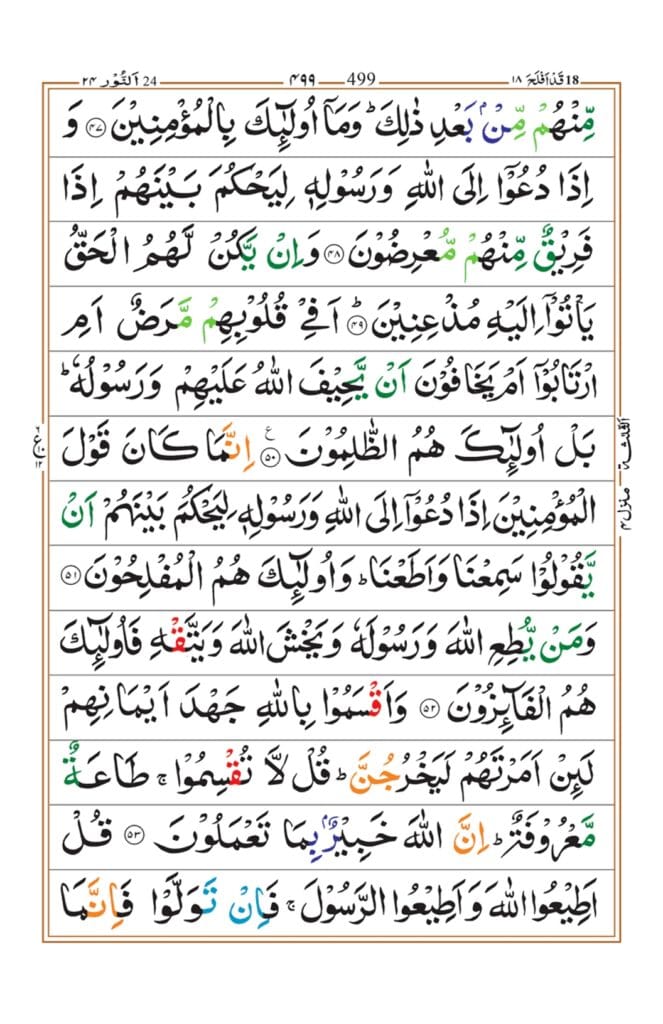 18 قَدْ اَفْلَحَ ١٨
499 ۴۹۹
24 اَلنُّوْر ٢۴
مِّنْهُمْ مِّنْۢ بَعْدِ ذٰلِكَ ؕ وَمَاۤ اُولٰٓئِكَ بِالْمُؤْمِنِيْنَ ﴿۴۷﴾ وَ
اِذَا دُعُوْۤا اِلَى اللّٰهِ وَرَسُوْلِهٖ لِيَحْكُمَ بَيْنَهُمْ اِذَا
فَرِيْقٌ مِّنْهُمْ مُّعْرِضُوْنَ ﴿۴۸﴾ وَاِنْ يَّكُنْ لَّهُمُ الْحَقُّ
يَاْتُوْۤا اِلَيْهِ مُذْعِنِيْنَ ﴿۴۹﴾ؕ اَفِيْ قُلُوْبِهِمْ مَّرَضٌ اَمِ
ارْتَابُوْۤا اَمْ يَخَافُوْنَ اَنْ يَّحِيْفَ اللّٰهُ عَلَيْهِمْ وَرَسُوْلُهٗ ؕ
بَلْ اُولٰٓئِكَ هُمُ الظّٰلِمُوْنَ ﴿۵۰﴾ۧ اِنَّمَا كَانَ قَوْلَ
الْمُؤْمِنِيْنَ اِذَا دُعُوْۤا اِلَى اللّٰهِ وَرَسُوْلِهٖ لِيَحْكُمَ بَيْنَهُمْ اَنْ
يَّقُوْلُوْا سَمِعْنَا وَاَطَعْنَا ؕ وَاُولٰٓئِكَ هُمُ الْمُفْلِحُوْنَ ﴿۵۱﴾
وَمَنْ يُّطِعِ اللّٰهَ وَرَسُوْلَهٗ وَيَخْشَ اللّٰهَ وَيَتَّقْهِ فَاُولٰٓئِكَ
هُمُ الْفَآئِزُوْنَ ﴿۵۲﴾ وَاَقْسَمُوْا بِاللّٰهِ جَهْدَ اَيْمَانِهِمْ
لَئِنْ اَمَرْتَهُمْ لَيَخْرُجُنَّ ؕ قُلْ لَّا تُقْسِمُوْا ۚ طَاعَةٌ
مَّعْرُوْفَةٌ ؕ اِنَّ اللّٰهَ خَبِيْرٌۢ بِمَا تَعْمَلُوْنَ ﴿۵۳﴾ قُلْ
اَطِيْعُوا اللّٰهَ وَاَطِيْعُوا الرَّسُوْلَ ۚ فَاِنْ تَوَلَّوْا فَاِنَّمَا
الثلٰثة
منزل ۴
ع